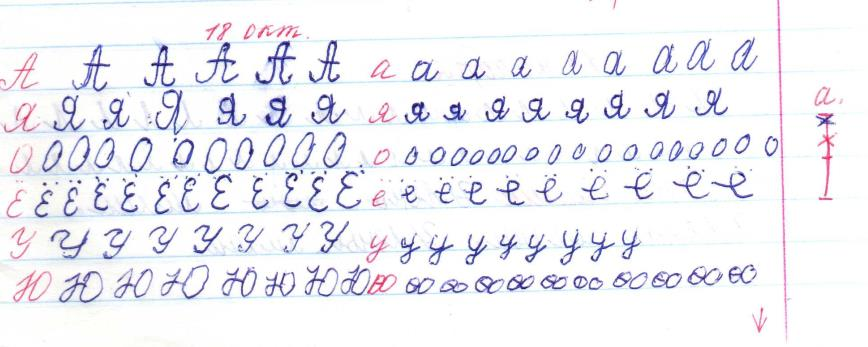 18 окт.
А А А А А А а а а а а а а а а
Я Я Я Я Я Я Я я я я я я я я я я
О О О О О О О О О О О О о о о о о о о о о о о о о о о о о о
Ё Ё Ё Ё Ё Ё Ё Ё Ё Ё Ё Ё ё ё ё ё ё ё ё ё ё ё
У У У У У У У У у у у у у у у у у
Ю Ю Ю Ю Ю Ю Ю Ю ю ю ю ю ю ю ю ю ю ю ю
а.